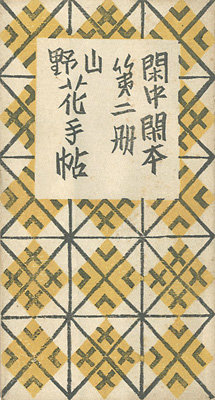 閑中閑本
第二册
山
野花手帖